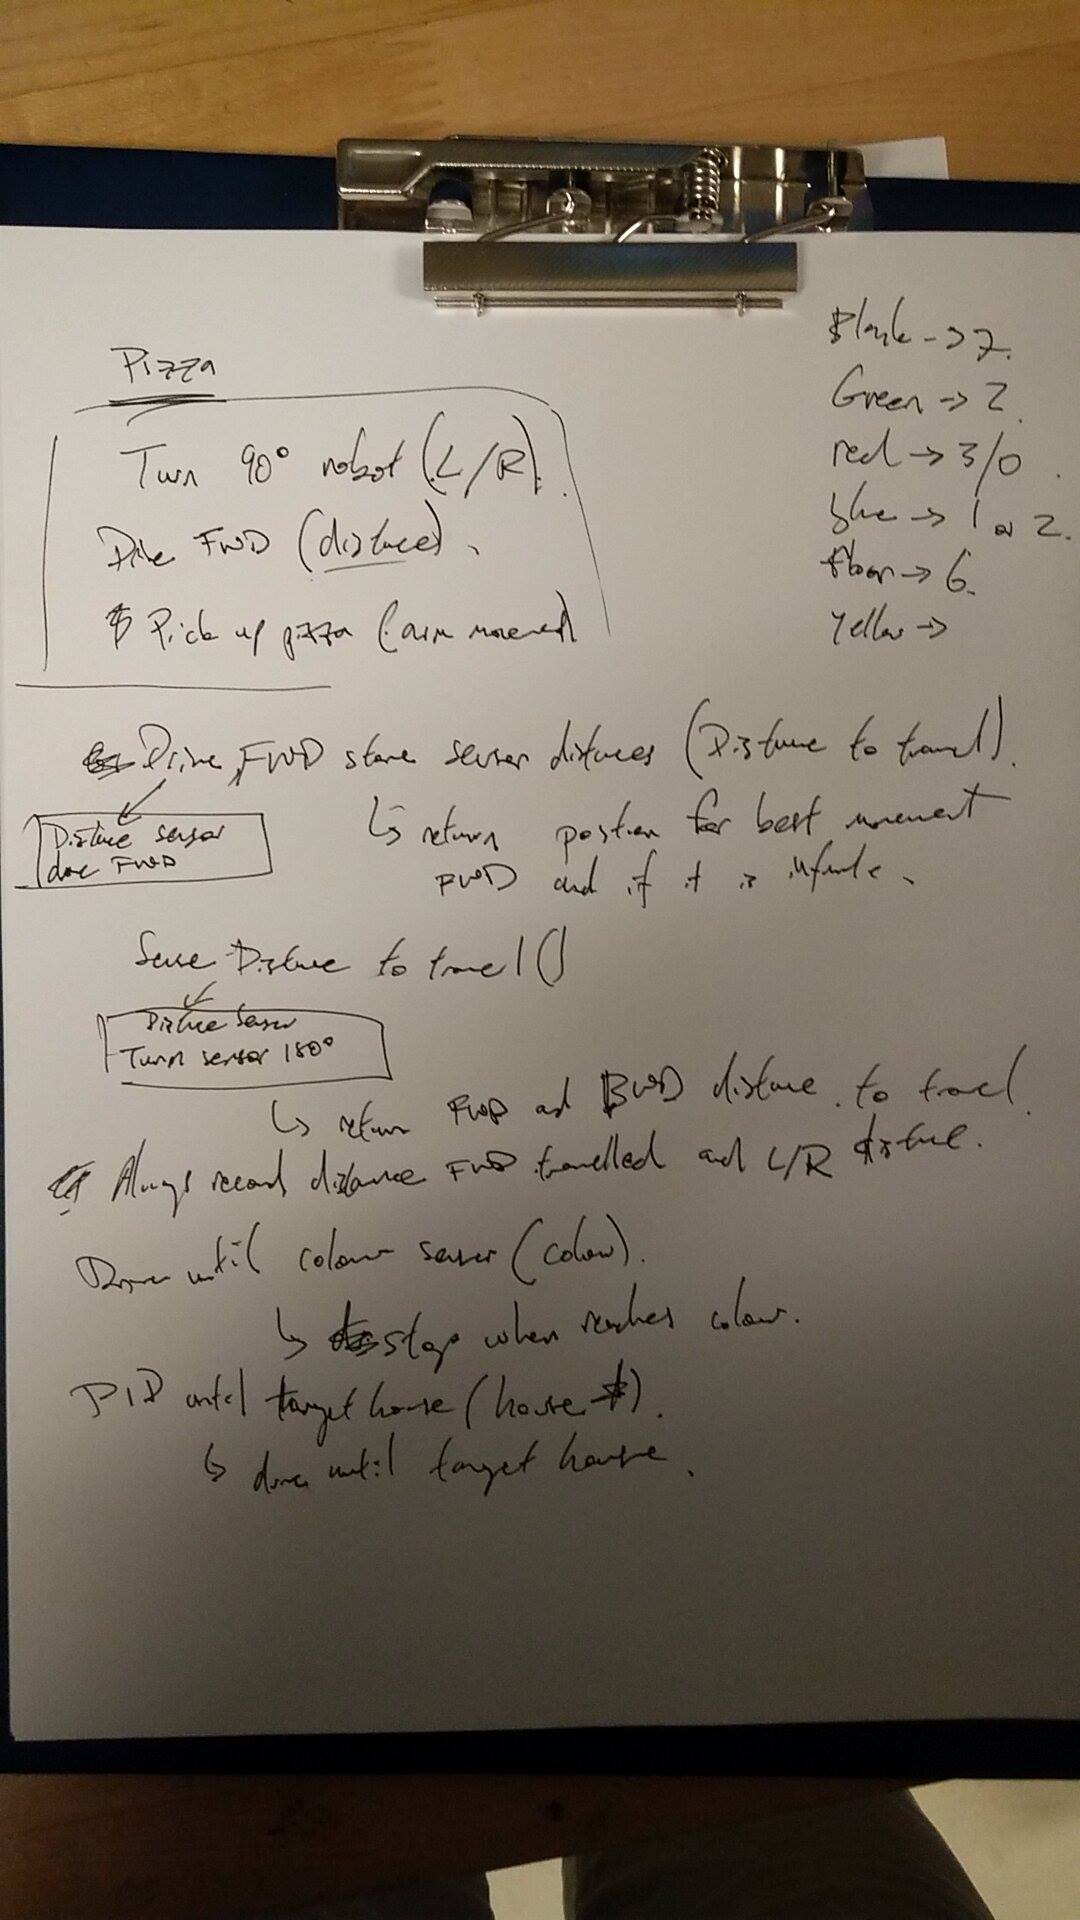 Pizza
Turn 90° robot (L/R).
Drive FWD (distance).
Pick up pizza (arm movement)
Black -> 7.
Green -> 2.
red -> 3/0.
blue -> 1 or 2.
floor -> 6.
Yellow ->
Drive FWD store sensor distances (Distance to travel).
Distance sensor
drive FWD
↳ return position for best movement
FWD and if it is infinite.
Sense Distance to travel ()
Distance Sensor
Turn sensor 180°
↳ return FWD and BWD distance to travel.
Always record distance FWD travelled and L/R distance.
Drive until colour sensor (colour).
↳ stop when reaches colour.
PID until target house (house #).
↳ drive until target house.